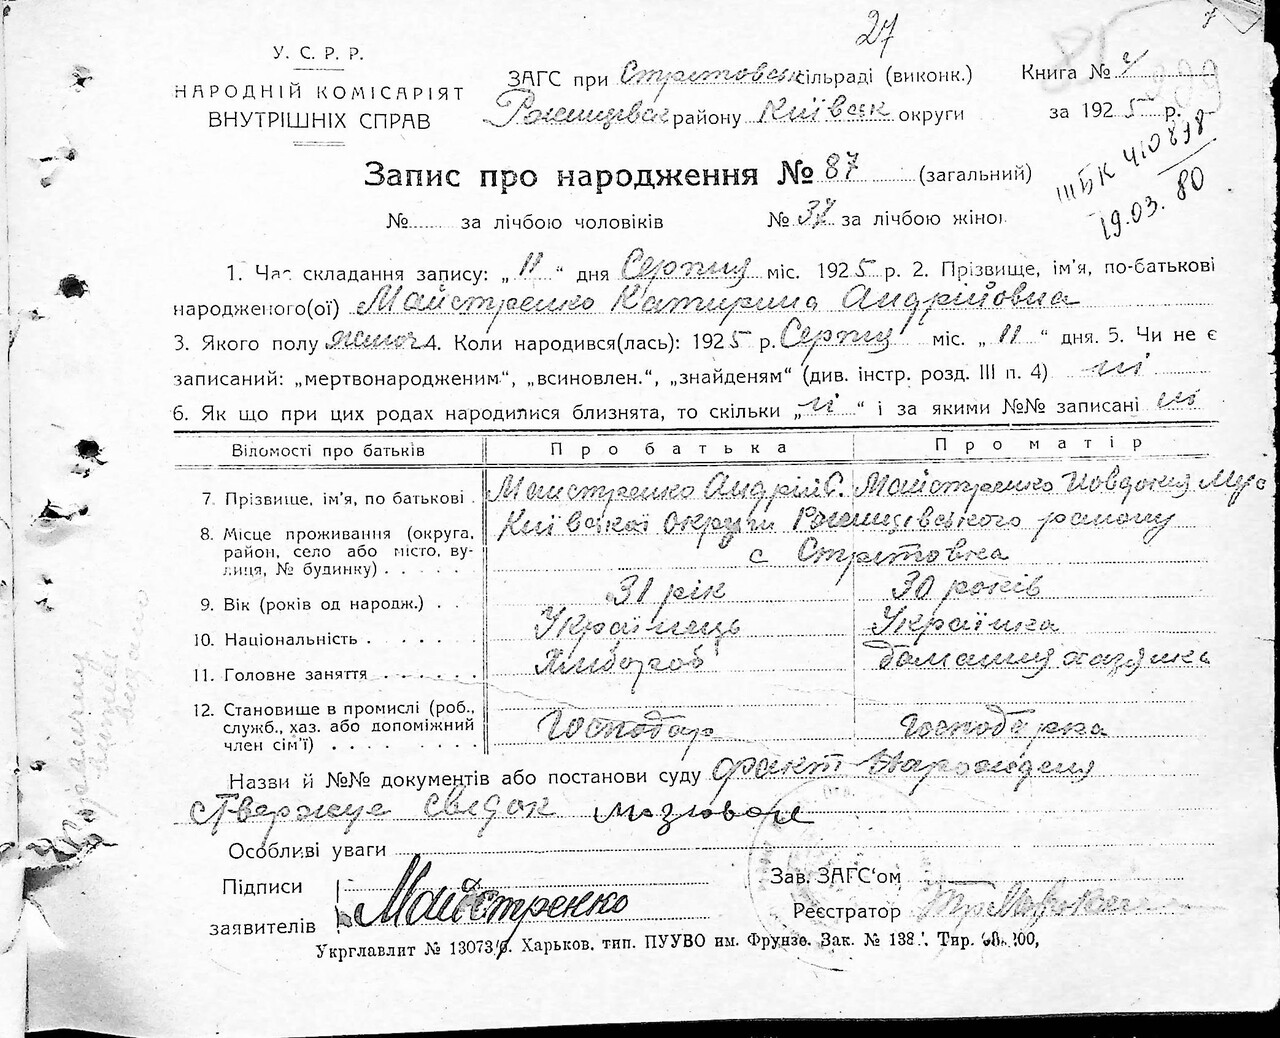 27
У. С. Р. Р.
НАРОДНІЙ КОМІСАРІЯТ
ВНУТРІШНІХ СПРАВ
ЗАГС при сільраді (виконк.)
району Київськ округи
Книга №
за 1925 р.
ШБК 410898
19.03.80
Запис про народження № 87 (загальний)
№ за лічбою чоловіків № 37 за лічбою жінок
1. Час складання запису: „ 11 “ дня Серпня міс. 1925 р. 2. Прізвище, ім'я, по-батькові
народженого(ої) Майстренко Катирина Андрійовна
3. Якого полу жіноч 4. Коли народився(лась): 1925 р. Серпня міс. „ 11 “ дня. 5. Чи не є
записаний: „мертвонародженим“, „всиновлен.“, „знайденям“ (див. інстр. розд. III п. 4) ні
6. Як що при цих родах народилися близнята, то скільки „ ні “ і за якими №№ записані ні
Відомості про батьків Про батька Про матір
7. Прізвище, ім'я, по батькові Майстренко Андрій С. Майстренко Ювдокия
8. Місце проживання (округа, район, село або місто, вулиця, № будинку) Київської округи району
с
9. Вік (років од народж.) 31 рік 30 років
10. Національність Українець Українка
11. Головне заняття Хлібороб домашня хазяйка
12. Становище в промислі (роб., служб., хаз. або допоміжний член сім'ї) Господар Господарка
Назви й №№ документів або постанови суду факт народження
стверожує свідок
Особливі уваги
Підписи
заявителів Майстренко
Зав. ЗАГС'ом
Реєстратор
Укрглавлит № 13073 Харьков. тип. ПУУВО им. Фрунзе. Зак. № 138 Тир.